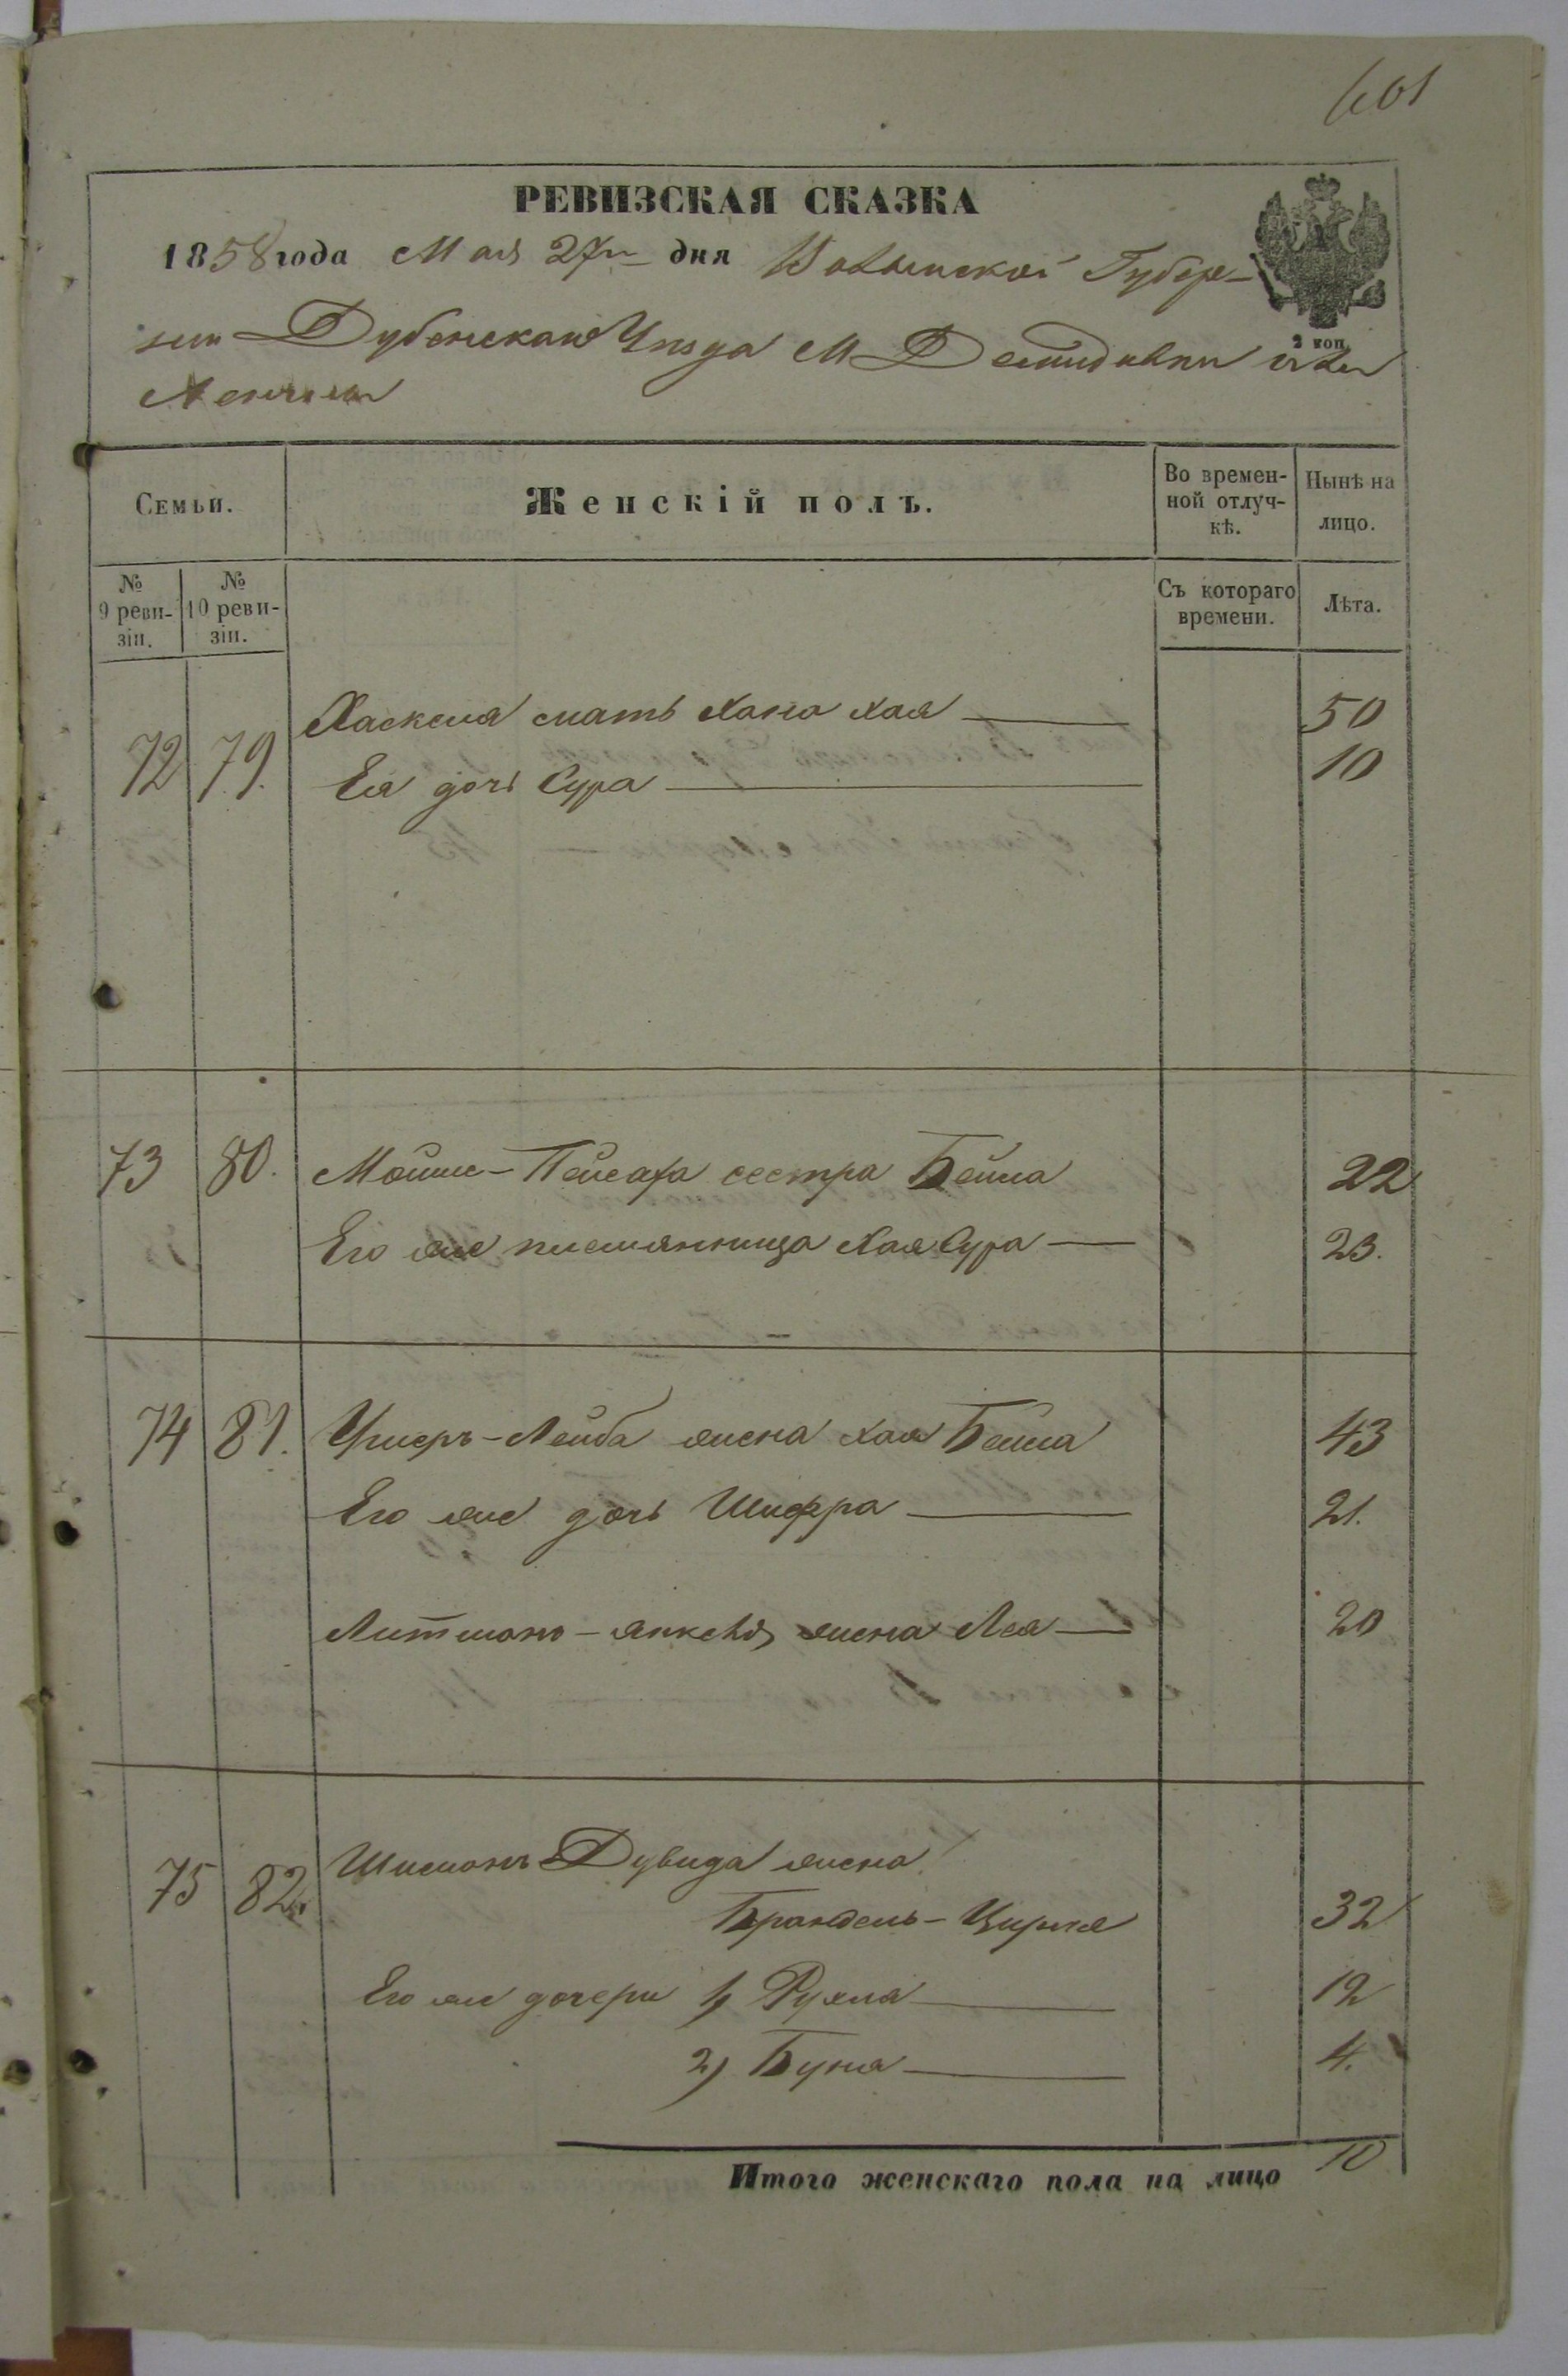 601
РЕВИЗСКАЯ СКАЗКА
1858 года Мая 27го дня Волынской Губер-
нии Дубенскаго Уезда М Демидовки
2 коп
Семьи.
Женскій полъ.
Во времен-
ной отлуч-
кѣ.
Нынѣ на
лицо.
№
9 реви-
зіи.
№
10 реви-
зіи.
Съ котораго
времени.
Лѣта.
72 79. Хаскеля мать Хана Хая 50
Ея дочь Сура 10
73 80. Мошие-Пейсаха сестра Бейла 22
Его же племянница Хая Сура 23.
74 81. Ушеръ-Лейба жена Хая Бейла 43
Его же дочь Шифра 21.
Литмонъ-Янкеля жена Лея 20
75 82. Шимонъ Дувида жена
Брандель-Цирля 32
Его же дочери 1) Рухля 12
2) Буня 4.
Итого женскаго пола на лицо 10